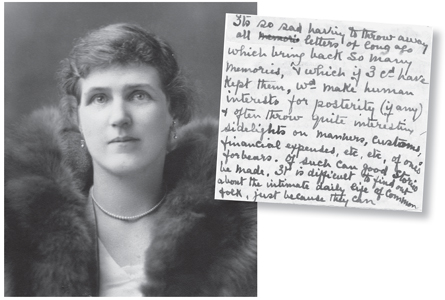 Its so sad having to throw away
all memoris letters of long ago
which bring back so many
memories, & which if I cd have
kept them, wd make human
interests for posterity (if any)
& often throw quite interesting
sidelights on manners, customs
financial expenses, etc, etc, of one's
forbears. Of such can good stories
be made, It is difficult to find out
about the intimate daily life of common
folk, just because they can